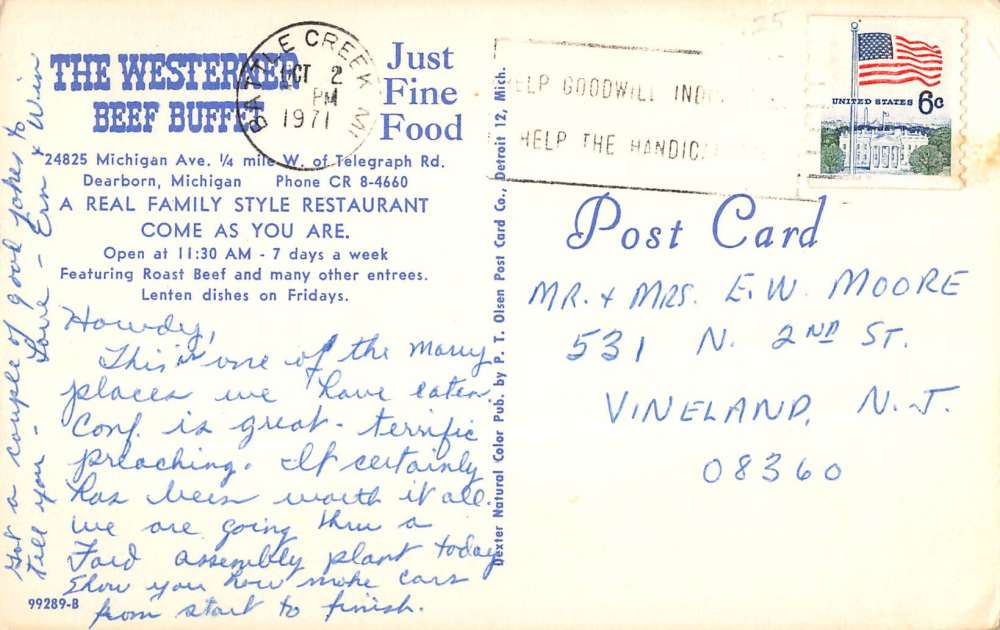 THE WESTERNER
BEEF BUFFET
Just
Fine
Food
24825 Michigan Ave. ¼ mile W. of Telegraph Rd.
Dearborn, Michigan Phone CR 8-4660
A REAL FAMILY STYLE RESTAURANT
COME AS YOU ARE.
Open at 11:30 AM - 7 days a week
Featuring Roast Beef and many other entrees.
Lenten dishes on Fridays.
BATTLE CREEK MI
OCT 2
PM
1971
HELP GOODWILL
HELP THE
UNITED STATES 6c
Post Card
Dexter Natural Color Pub. by P. T. Olsen Post Card Co., Detroit 12, Mich.
MR. + MRS. E. W. MOORE
531 N. 2ND ST.
VINELAND, N. J.
08360
Howdy,
This is one of the many
places we have eaten
Conf. is great - terrific
preaching. It certainly
has been worth it all.
We are going thru a
Ford assembly plant today
Show you how make cars
from start to finish.
Got a couple of good jokes to
tell you - Love - Ern + Win
99289-B